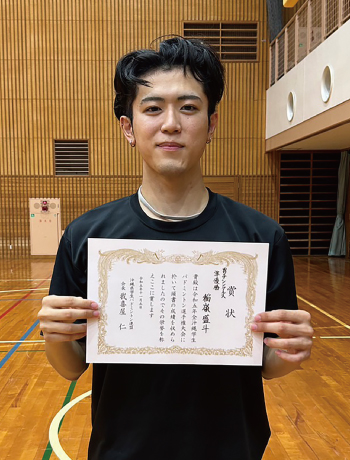 賞状
男子シングルス
準優勝
楢嶺盛斗
貴殿は令和五年全沖縄学生
バドミントン選手権大会に
於いて頭書の成績を収めら
れましたのでその栄誉を称
えここに賞します
沖縄県学生バドミントン連盟
会長 我喜屋 仁